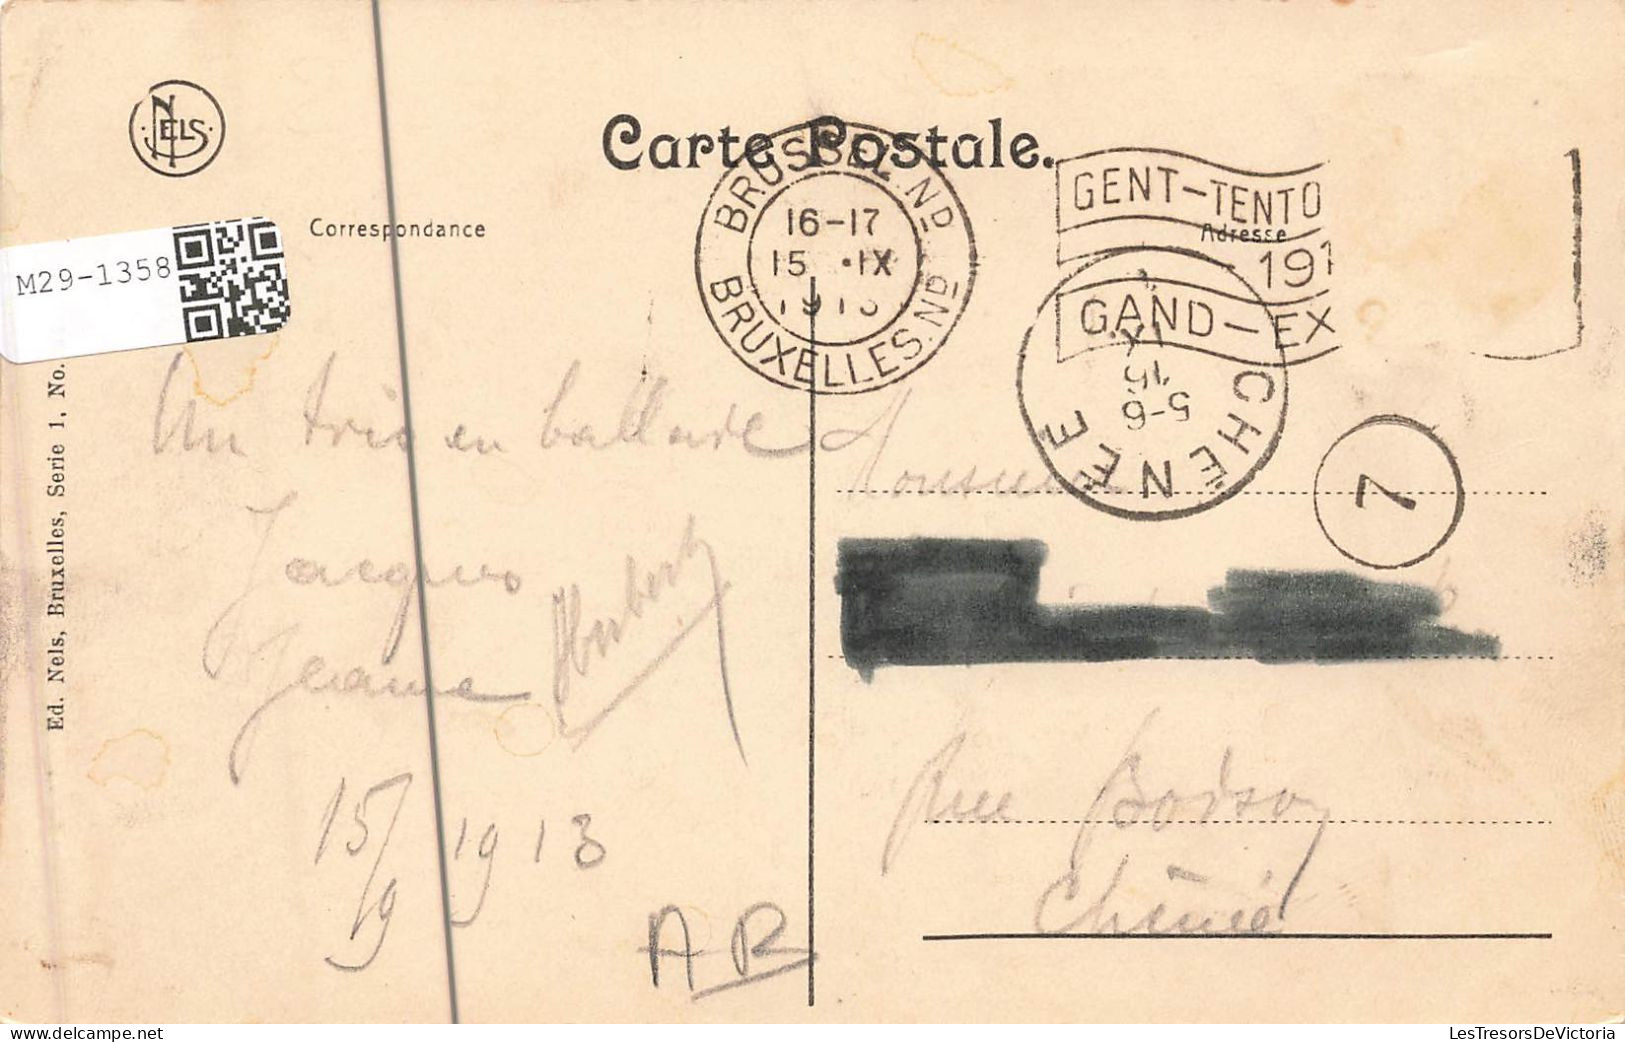 NELS
Carte Postale.
Correspondance
Adresse
M29-1358
BRUSSEL.Nd
16-17
15 .IX
BRUXELLES.Nd
GENT-TENTO
191
GAND-EX
CHÊNÉE
5-6
15
IX
7
Ed. Nels, Bruxelles, Serie 1, No.
Un trio en ballade
Jacques
Jeanne
Monsieur
Rue Bodson
Chênée
15/9 1913
AR
LesTresorsDeVictoria
www.delcampe.net